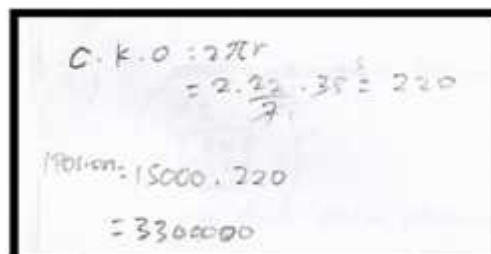 C. K. O : 2πr
= 2. 22/7 . 35 = 220
= 15000. 220
= 3300000